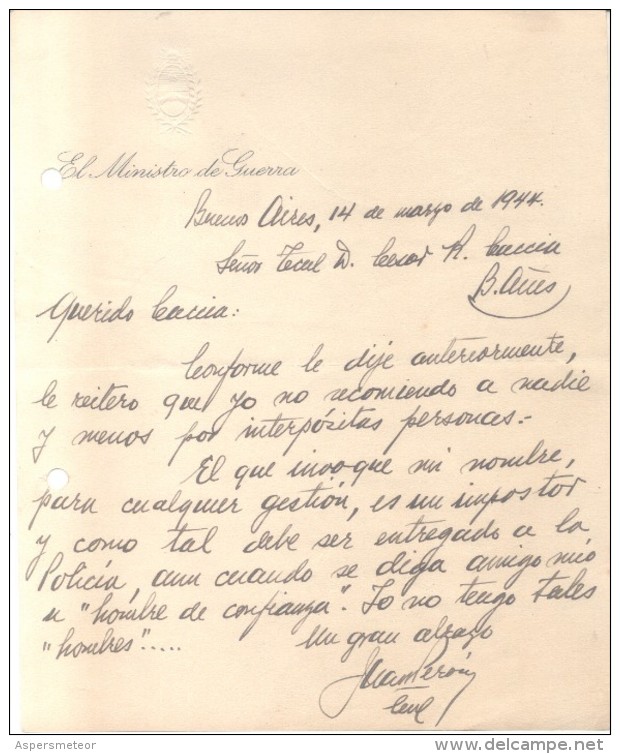 El Ministro de Guerra
Buenos Aires, 14 de marzo de 1944.
Señor Tcnl D. Cesar R. Caccia
B. Aires
Querido Caccia:
Conforme le dije anteriormente,
le reitero que yo no recomiendo a nadie
y menos por interpósitas personas.-
El que invoque mi nombre,
para cualquier gestión, es un impostor
y como tal debe ser entregado a la
Policía, aun cuando se diga amigo mío
u "hombre de confianza". Yo no tengo tales
"hombres".....
Un gran abrazo
Juan Perón
Cnel
Aspersmeteor
delcampe.net